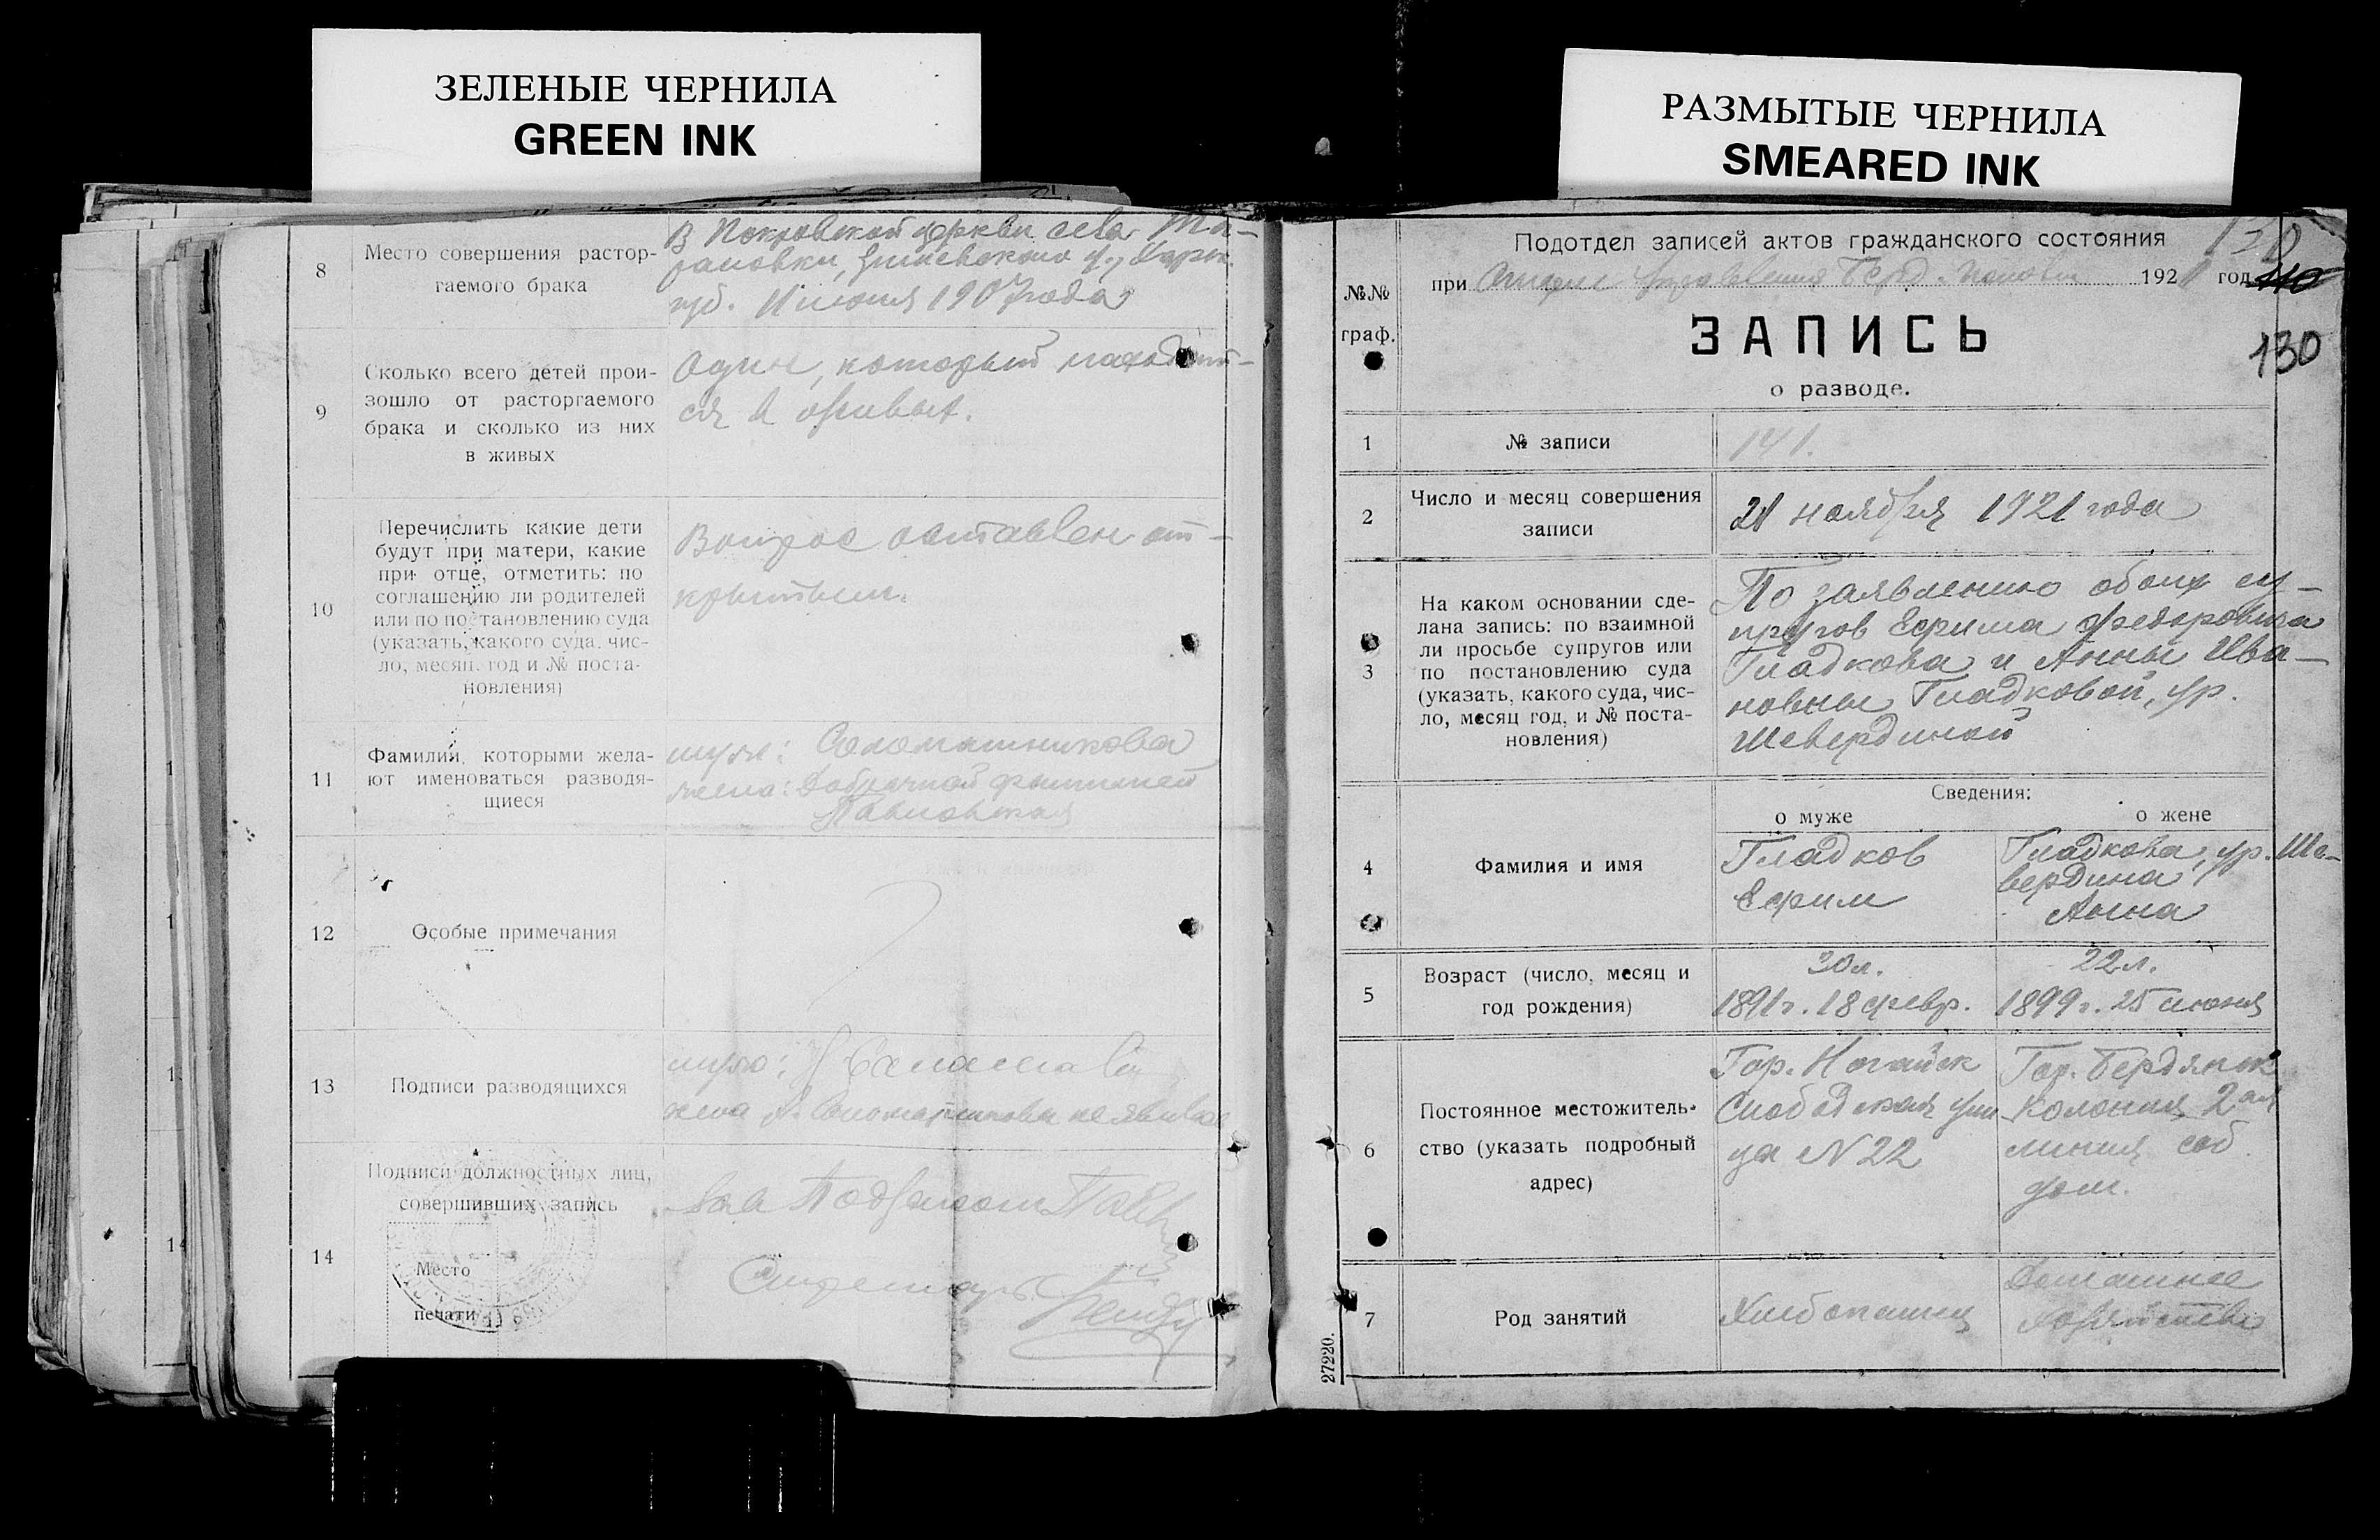 ЗЕЛЕНЫЕ ЧЕРНИЛА
GREEN INK
РАЗМЫТЫЕ ЧЕРНИЛА
SMEARED INK
8
Место совершения растор-
гаемого брака
В Покровской церкви села
Змиевского у., Харьк.
губ. июня 1907 года
9
Сколько всего детей прои-
зошло от расторгаемого
брака и сколько из них
в живых
Один, который находит-
ся в живых.
10
Перечислить какие дети
будут при матери, какие
при отце, отметить: по
соглашению ли родителей
или по постановлению суда
(указать, какого суда, чис-
ло, месяц, год и № поста-
новления)
Вопрос оставлен от-
крытым.
11
Фамилии, которыми жела-
ют именоваться разводя-
щиеся
муж: Соломатникова
жена: Добрачной фамилией
Павловская
12
Особые примечания
13
Подписи разводящихся
муж:
жена
14
Подписи должностных лиц,
совершивших запись
Место
печати
Зав Подотделом
Секретарь
Подотдел записей актов гражданского состояния
при Отделе Управления Берд. 1921 год
130
110
130
№№
граф.
ЗАПИСЬ
о разводе.
1
№ записи
141.
2
Число и месяц совершения
записи
21 ноября 1921 года
3
На каком основании сде-
лана запись: по взаимной
ли просьбе супругов или
по постановлению суда
(указать, какого суда, чис-
ло, месяц год, и № поста-
новления)
По заявлению обоих су-
пругов Ефима Федоровича
Гладкова и Анны Ива-
новны Гладковой, ур.
Шевердиной
Сведения:
о муже
о жене
4
Фамилия и имя
Гладков
Ефим
Гладкова, ур. Ше-
вердина
Анна
5
Возраст (число, месяц и
год рождения)
30 л.
1891 г. 18 февр.
22 л.
1899 г. 25 июня
6
Постоянное местожитель-
ство (указать подробный
адрес)
Гор. Ногайск
Слободская ули
ца № 22
Гор. Бердянск
Колония, 2ая
линия соб.
дом.
7
Род занятий
Хлебопашец
Домашнее
хозяйство
27220.